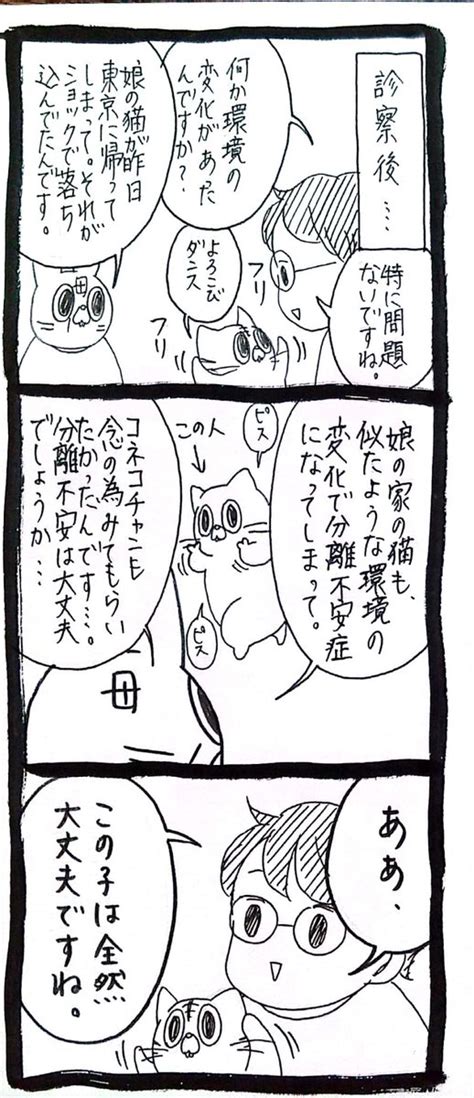 診察後…
特に問題
ないですね。
何か環境の
変化があっ
たんですか？
よろこび
ダンス
フリ
フリ
娘の猫が昨日
東京に帰って
しまって。それが
ショックで落ち
込んでたんです。
母
娘の家の猫も、
似たような環境の
変化で分離不安症
になってしまって。
ピス
この人
ピス
コネコチャンも
念の為みてもらい
たかったんです…。
分離不安は大丈夫
でしょうか…
母
ああ、
この子は全然
大丈夫ですね。